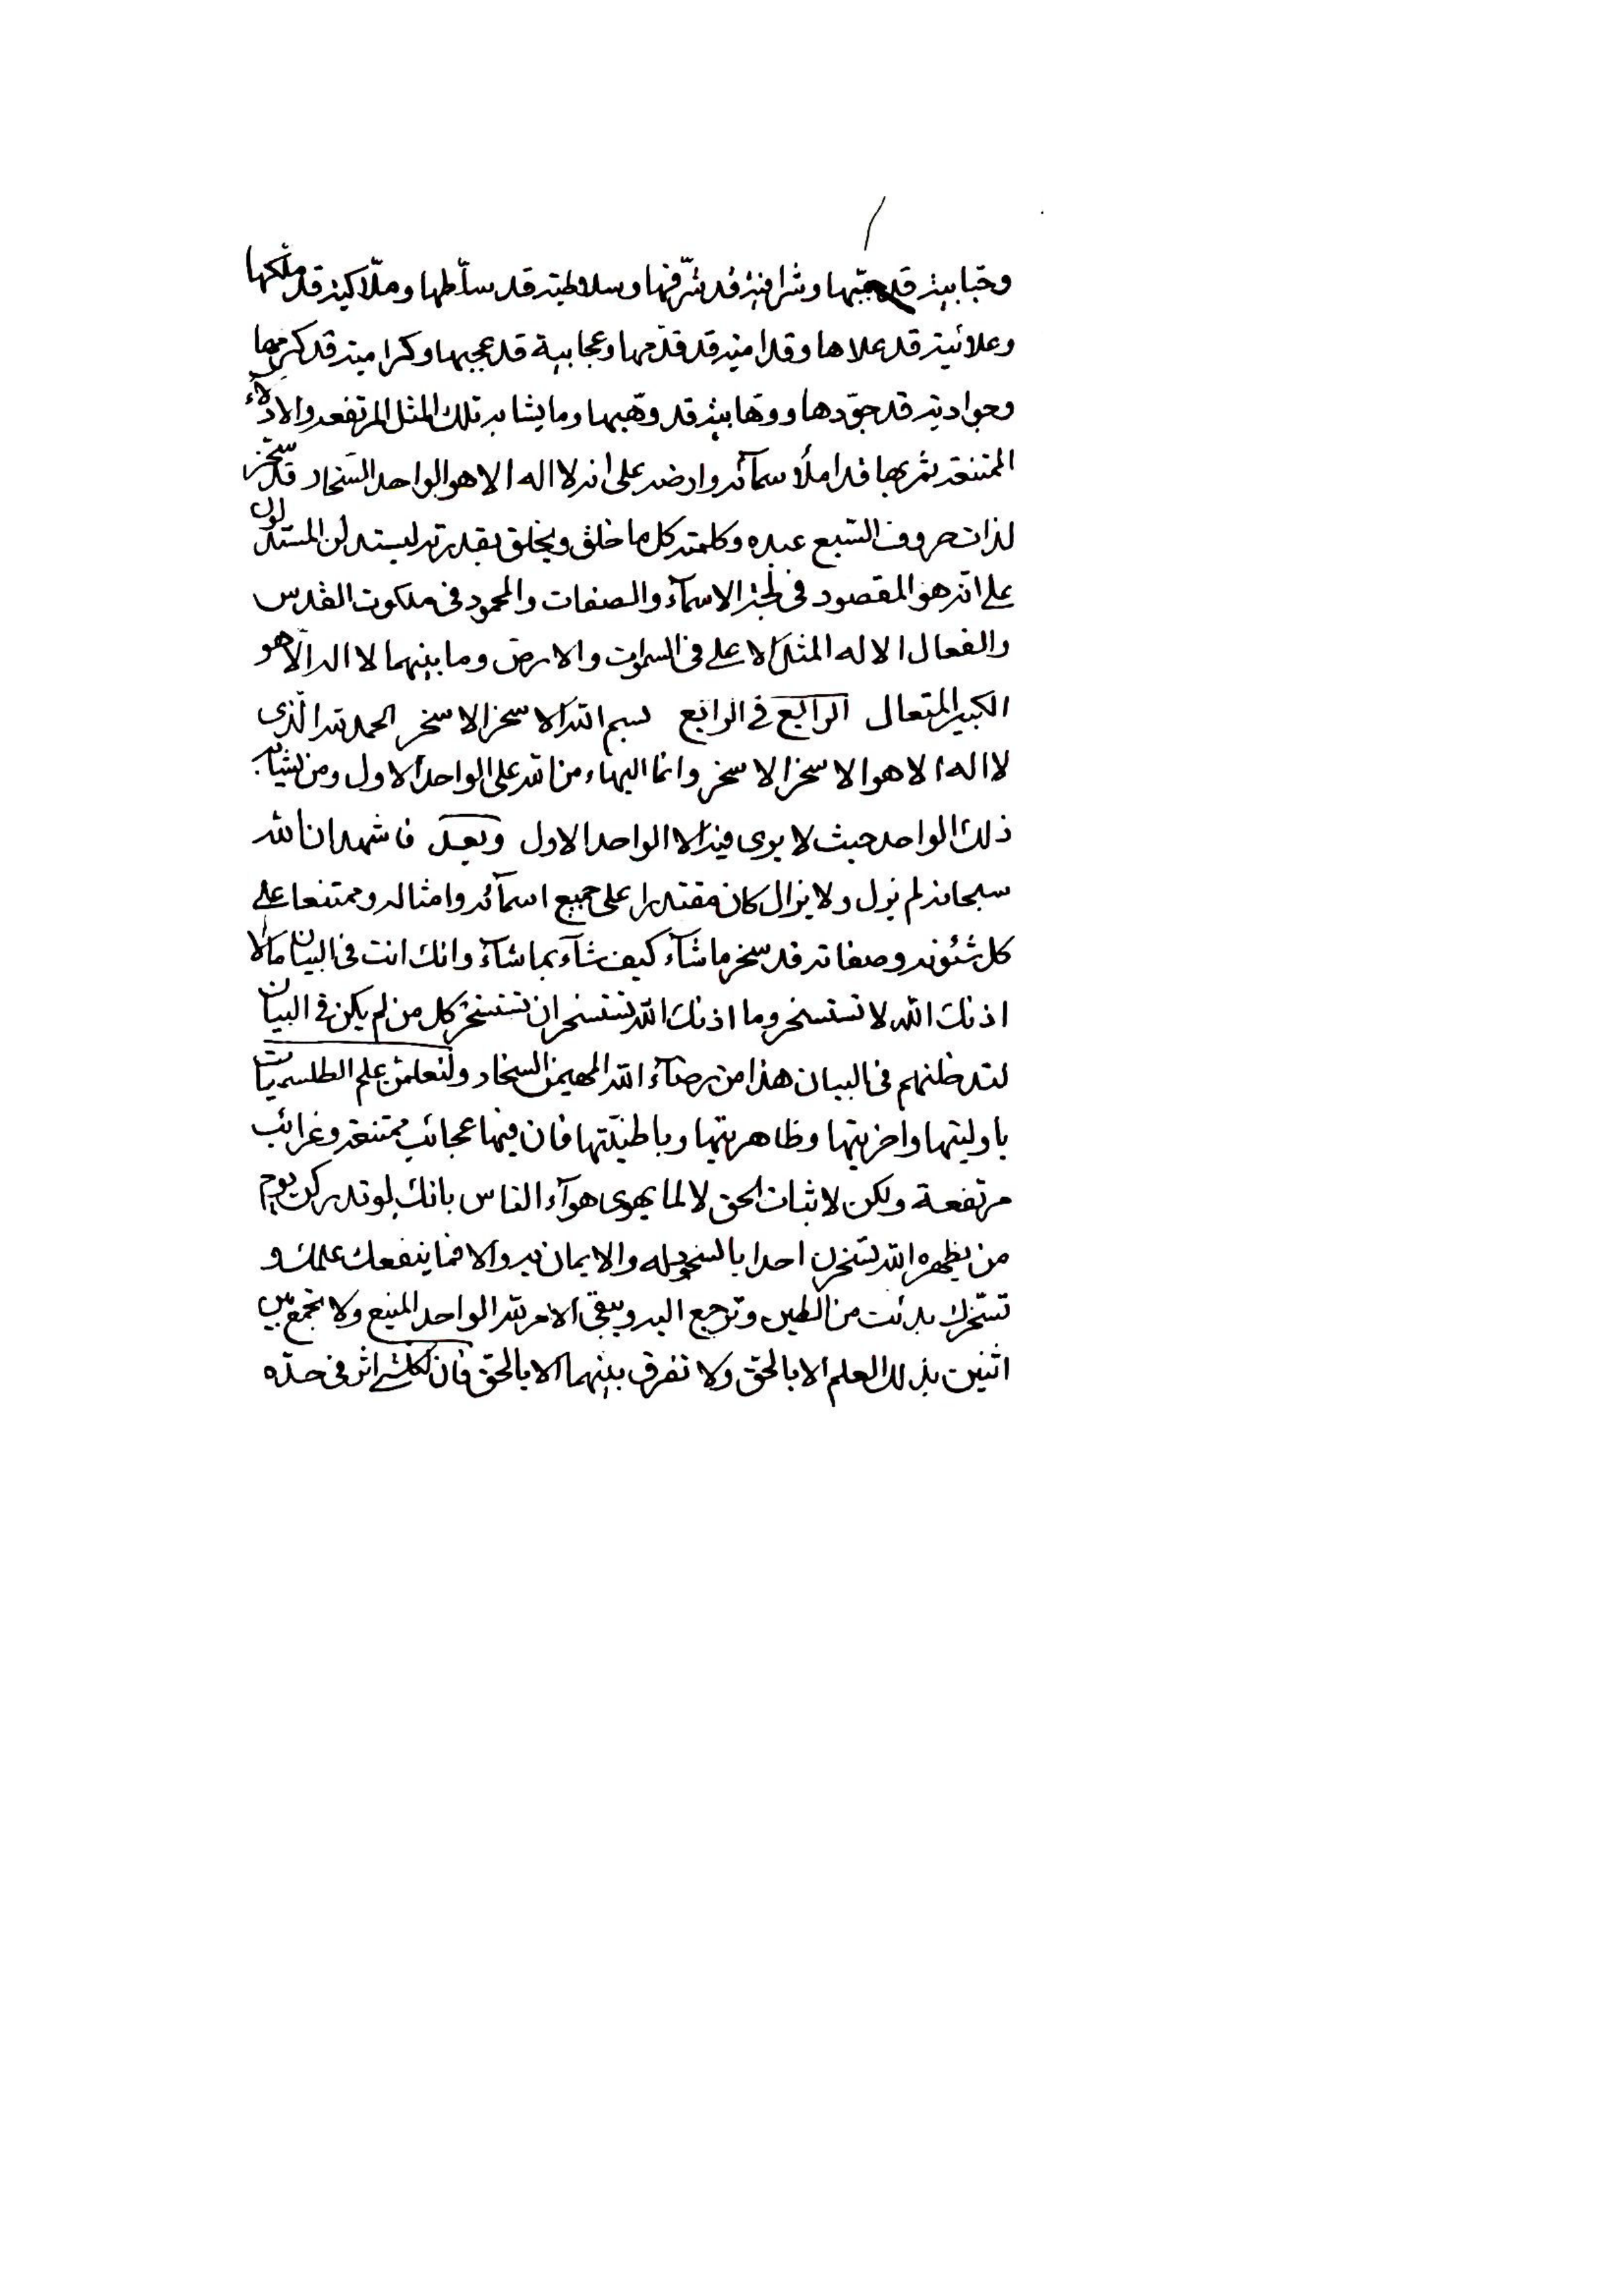 وحبّابية قد حبّبها وشرافية قد شرّفها وسلاطية قد سلّطها وملّاكية قد ملّكها
وعلائية قد علاها وقدامية قد قدّمها وعجابية قد عجبها وكرامية قد كرّمها
وجوادية قد جوّدها ووهّابية قد وهّبها وما يشابه تلك المثل المرتفعه والادلّاء
الممتنعه ثمّ بها قد املأ سمآئه وارضه على انه لا اله الا هو الواحد السّخار قد سخّر
لذات حروف السّبع عبده وكلمته كل ما خلق ويخلق بقدرته ليستدلن المستدلون
على انّه هو المقصود في لجّة الاسمآء والصفات والمحمود في ملكوت القدس
والفعال الا له المثل الاعلى في السموات والارض وما بينهما لا اله الّا هو
الكبير المتعال الرابع في الرابع بسم الله الاسخر الاسخر الحمد لله الّذي
لا اله الا هو الاسخر الاسخر وانما البهاء من الله على الواحد الاول ومن يشابه
ذلك الواحد حيث لا يرى فيه الا الواحد الاول وبعد فاشهد ان الله
سبحانه لم يزل ولا يزال كان مقتدرا على جميع اسمآئه وامثاله وممتنعا على
كل شئونه وصفاته قد سخر ما شآء كيف شآء بما شآء وانك انت في البيان ما لا
اذنك الله لا تستسخر وما اذنك الله تستسخر ان تستسخر كل من لم يكن في البيان
لتدخلنهم في البيان هذا من رضآء الله المهيمن السخار ولتعلمن علم الطلسميات
باوليتها واخريتها وظاهريتها وباطنيّتها فان فيها عجائب ممتنعه وغرائب
مرتفعة ولكن لاثبات الحق لا لما يهوى هوآء الناس بانك لو تدركن يوم
من يظهره الله لتسخرن احدا بالسجود له والايمان به والا فما ينفعك علمك و
تسخّرك بدئت من الطين وترجع اليه ويبقى الامر لله الواحد المنيع ولا تجمع بين
اثنين بذلك العلم الا بالحق ولا تفرق بينهما الا بالحق فان لكلشئ اثر في حدّه